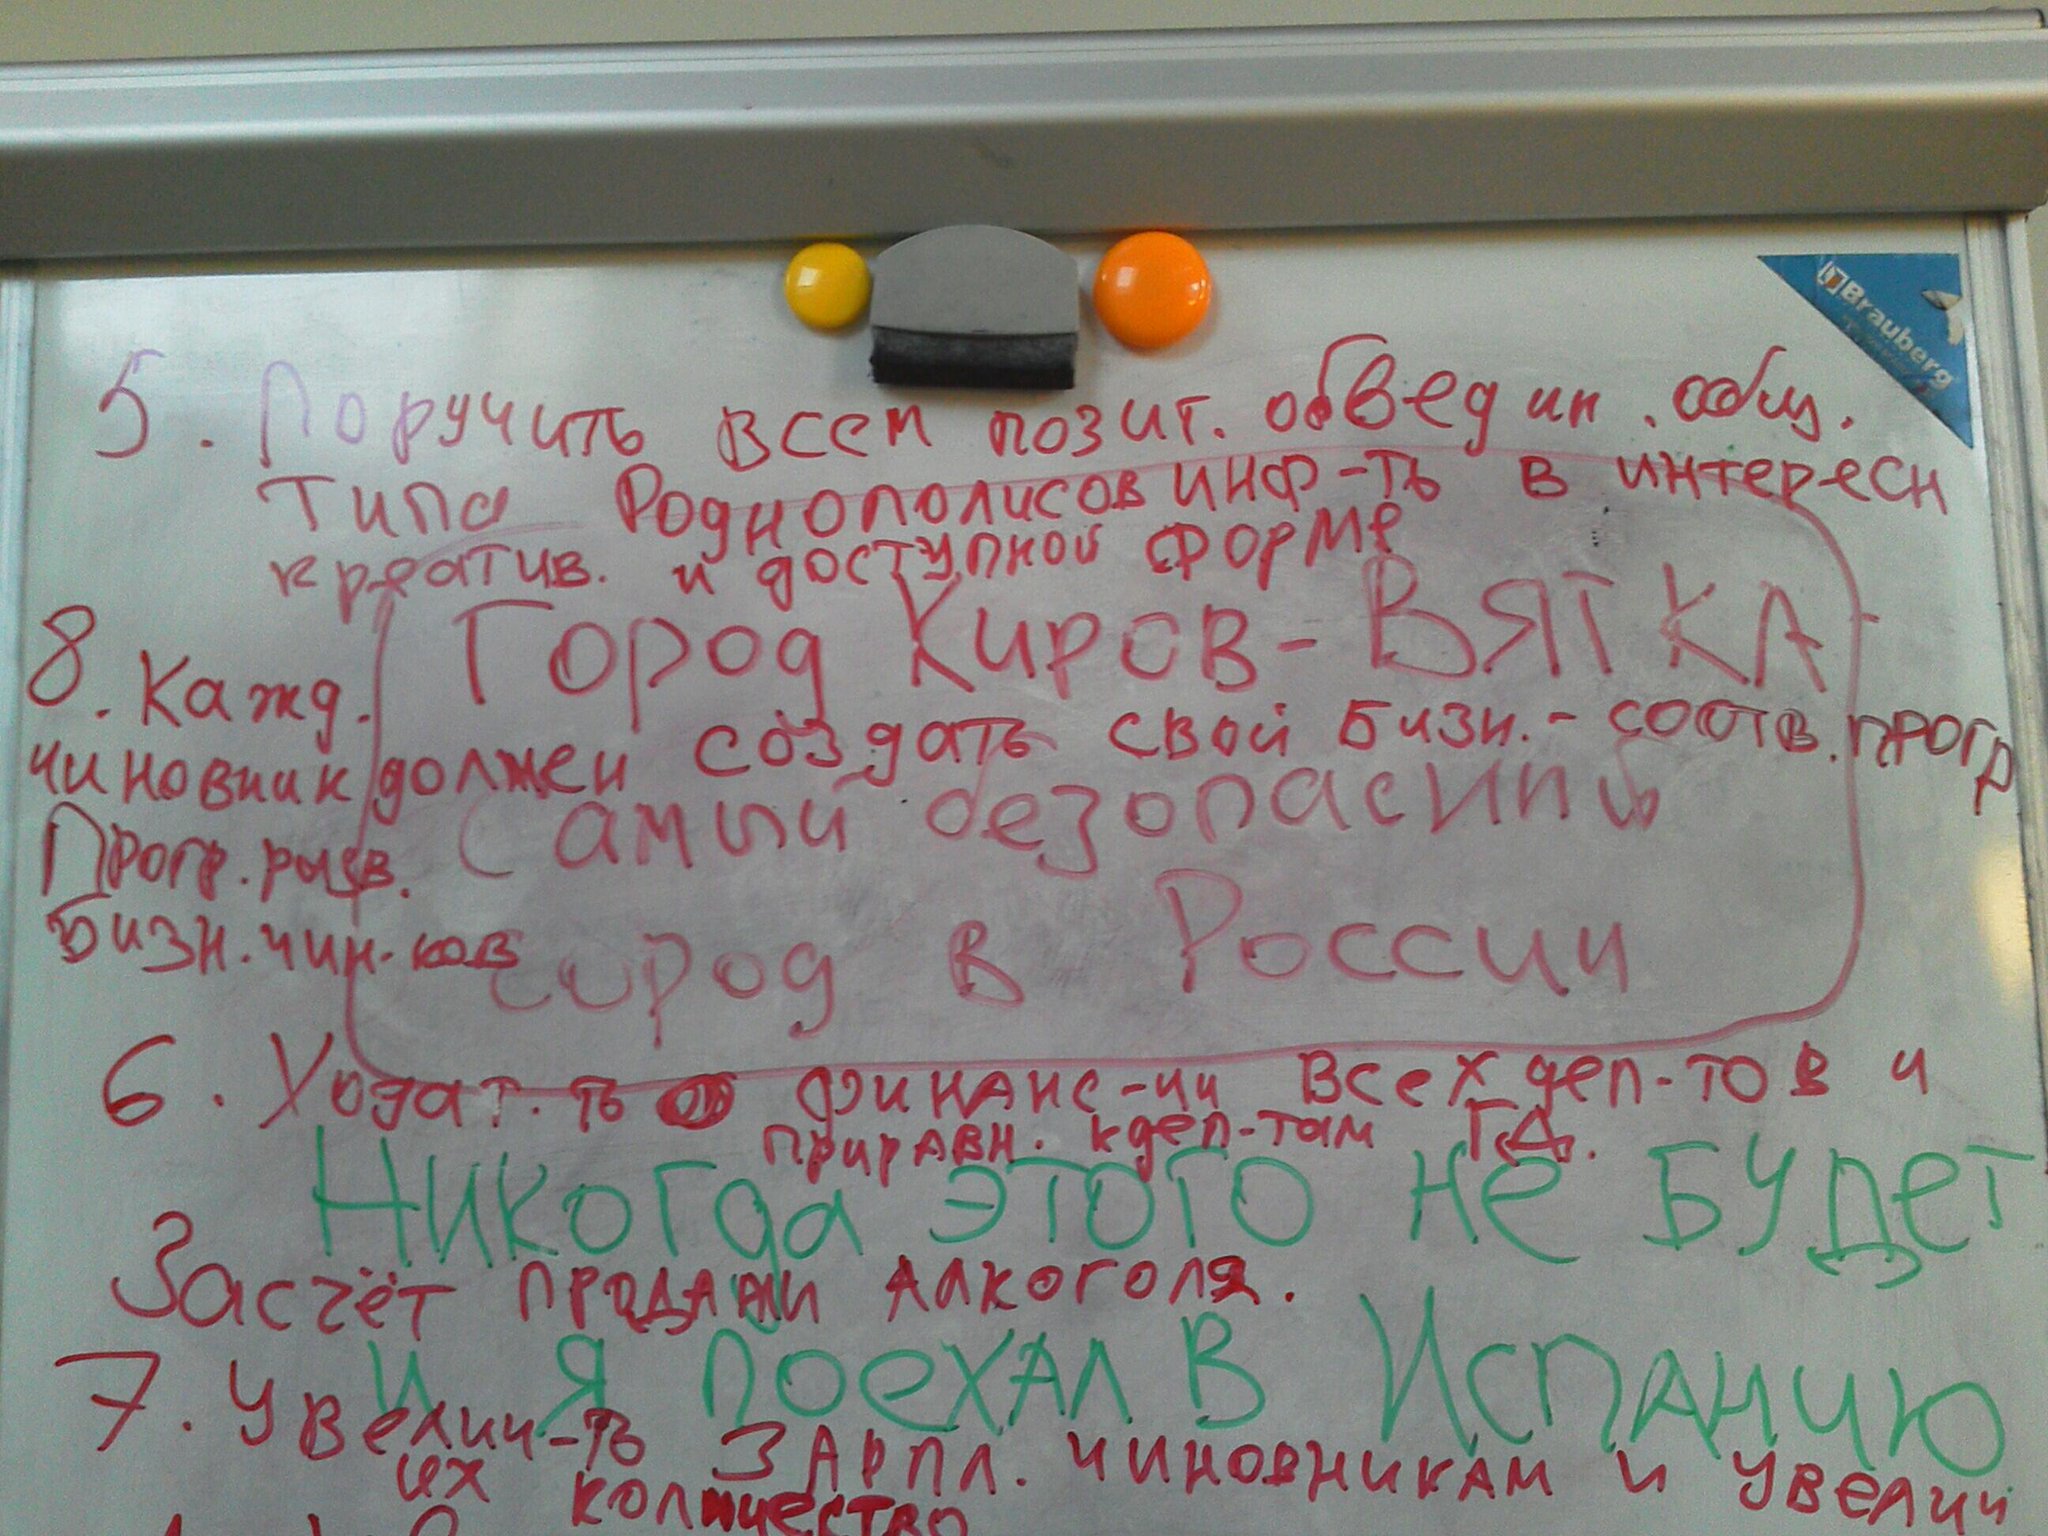 Brauberg
5. Поручить всем позит. обведин. общ.
типа Роднополисов инф-ть в интересн
креатив. и доступной форме
Город Киров-ВЯТКА
8. Кажд.
чиновник должен создать свой бизн.- соотв. прогр
Самый безопасный
Прогр. разв.
бизн. чин-ков
город в России
6. Ходат.-ть о финанс-ии всех деп-тов и
приравн. к деп-там Г.Д.
Никогда этого не будет
Засчёт продажи алкоголя.
и я поехал в Испанию
7. Увелич-ть зарпл. чиновникам и увелич
их количество